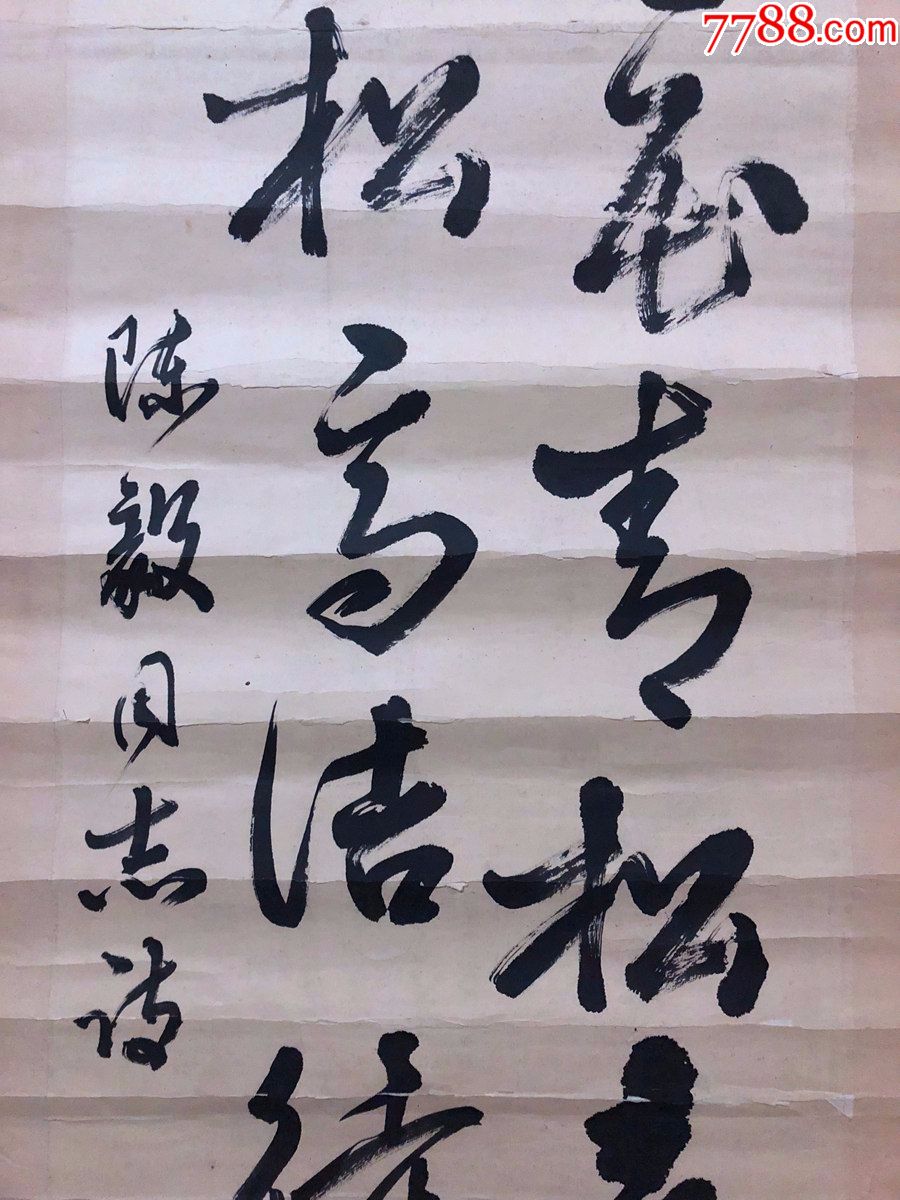 7788.com
青松
松高洁待
陈毅同志诗